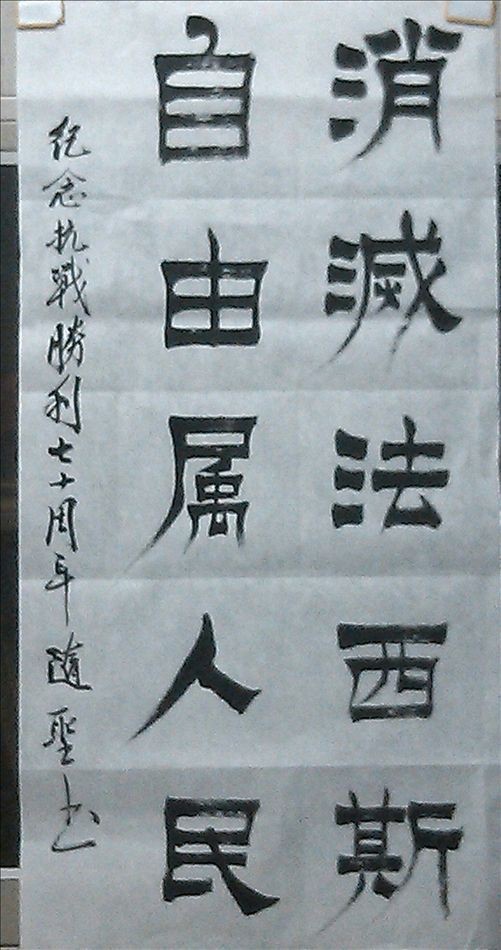 消滅法西斯
自由属人民
紀念抗戰勝利七十周年随聖书